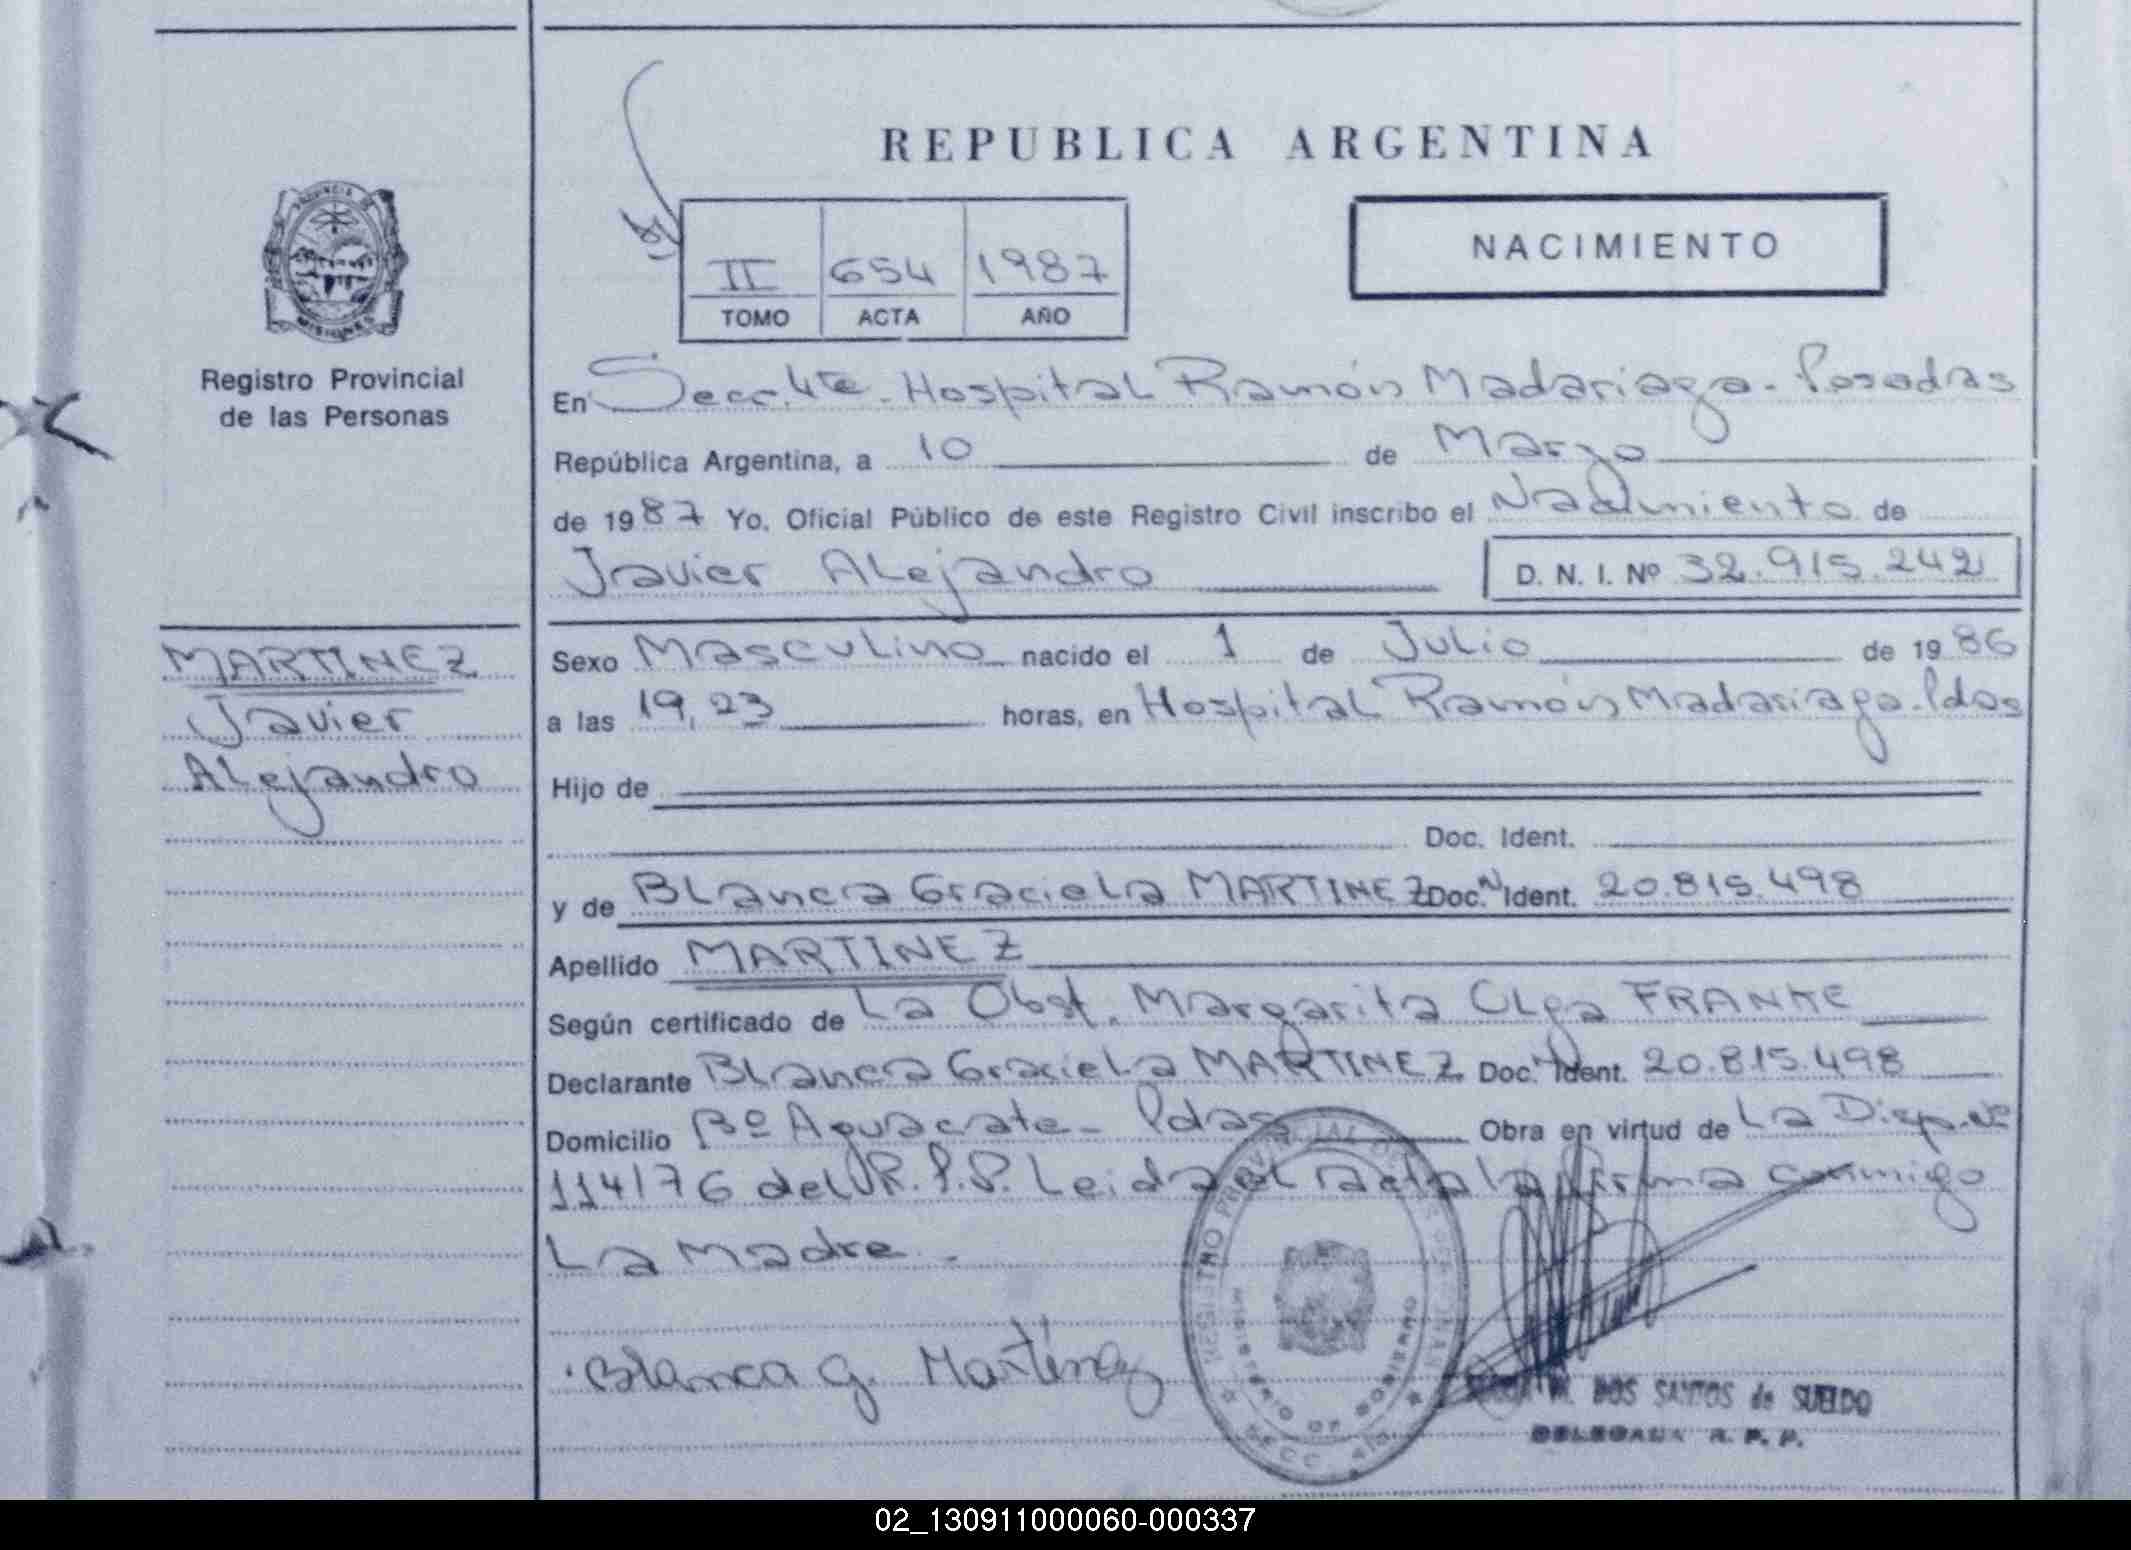 REPUBLICA ARGENTINA
NACIMIENTO
II 654 1987
TOMO ACTA AÑO
PROVINCIA DE MISIONES
Registro Provincial
de las Personas
En Secc. 4ta. Hospital Ramón Madariaga - Posadas
República Argentina, a 10 de Marzo
de 1987 Yo, Oficial Público de este Registro Civil inscribo el Nacimiento de
Javier Alejandro D. N. I. Nº 32.915.242
MARTINEZ
Javier
Alejandro
Sexo Masculino nacido el 1 de Julio de 1986
a las 19,23 horas, en Hospital Ramón Madariaga - Pdas
Hijo de
Doc. Ident.
y de Blanca Graciela MARTINEZ Doc. Ident. 20.815.498
Apellido MARTINEZ
Según certificado de La Obst. Margarita Olga FRANKE
Declarante Blanca Graciela MARTINEZ Doc. Ident. 20.815.498
Domicilio Bº Aguacate - Pdas Obra en virtud de La Disp. Nº
114/76 del R.P.P. Leida el acta la firma conmigo
La Madre.-
Blanca G. Martínez
REGISTRO PROVINCIAL DE LAS PERSONAS
MINISTERIO DE GOBIERNO
SECC. 4ta
M. DOS SANTOS de SUELDO
DELEGADA R. P. P.
02_130911000060-000337